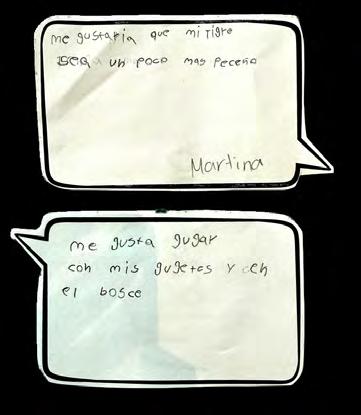 me gustaria que mi tigre
sea un poco mas peceño
Martina
me gusta gugar
con mis gugetes y en
el bosce